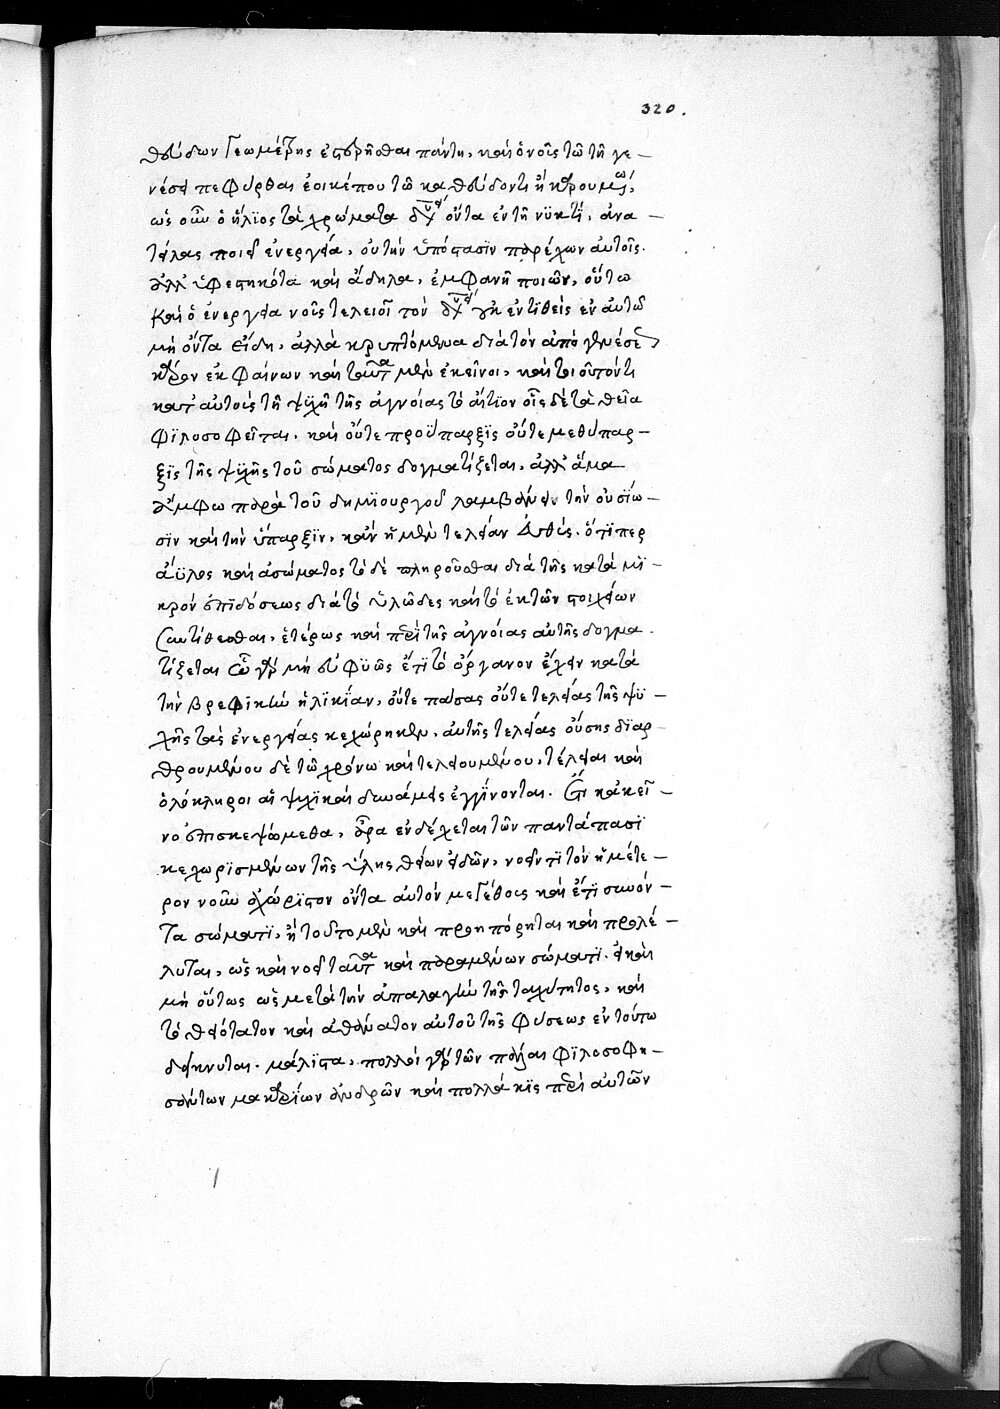 320.
θεύδων γεωμέτρης ἐστερῆσθαι πάντη, καὶ ὁ νοῦς τῶ τῆ γε –
νέσει πεφύρθαι ἐοικέ που τῶ καθεύδοντι ἢ κεκρουμμένως,
ὡς οὖν ὁ ἥλϊος τὰ χρώματα δυνάμει ὄντα ἐν τῆ νϋκτὶ, ἀνα –
τείλας ποιεῖ ἐνεργεία, οὐ τὴν ὑπόστασϊν παρέχων αὐτοῖς.
ἀλλ' ὑφεστηκότα καὶ ἄδηλα, ἐμφανῆ ποιῶν, οὕτω
καὶ ὁ ἐνεργεία νοῦς τελειοῖ τὸν δυνάμει οὐκ ἐντϊθεὶς ἐν αὐτῶ
μὴ ὄντα εἴδη, ἀλλὰ κρυπτόμενα διὰ τὸν ἀπὸ γενέσεως
κάρον ἐκφαίνων καὶ ταῦτα μὲν ἐκεῖνοι, καὶ τοιοῦτόν τι
κατ' αὐτοὺς τῆ ψϋχῆ τῆς ἀγνοίας τὸ αἴτϊον οἷς δὲ τὰ θεῖα
φϊλοσοφεῖται, καὶ οὔτε προϋπαρξϊς οὔτε μεθύπαρ –
ξϊς τῆς ψϋχῆς τοῦ σώματος δογματίζεται, ἀλλ' ἅμα
ἄμφω παρὰ τοῦ δημϊουργοῦ λαμβάνειν τὴν οὐσίω –
σϊν καὶ τὴν ὕπαρξϊν, κἂν ἡ μὲν τελείαν εὐθὺς. ὅτϊπερ
ἀϋλος καὶ ἀσώματος τὸ δὲ πληροῦσθαι διὰ τῆς κατὰ μϊ –
κρὸν ἐπϊδόσεως διὰ τὸ ὑλῶδες καὶ τὸ ἐκ τῶν στοιχείων
συντίθεσθαι, ἑτέρως καὶ περὶ τῆς ἀγνοίας αὐτῆς δογμα.
τίζεται ὡς γὰρ μὴ εὐφϋῶς ἔτϊ τὸ ὄργανον ἔχειν κατὰ
τὴν βρεφϊκὴν ἡλϊκΐαν, οὔτε πάσας οὔτε τελείας τῆς ψϋ –
χῆς τὰς ἐνεργείας κεχώρηκεν, αὐτῆς τελείας οὔσης δϊαρ –
θρουμένου δὲ τῶ χρόνω καὶ τελειουμένου, τέλειαι καὶ
ὁλόκληροι αἱ ψϋχϊκαὶ δυνάμεις ἐγγίνονται. Ἔτι κἀκεῖ –
νο ἐπισκεψώμεθα, ἆρα ἐνδέχεται τῶν παντάπασϊ
κεχωρϊσμένων τῆς ὕλης θείων εἰδῶν, νοεῖν τϊ τὸν ἡμέτε –
ρον νοῦν ἀχώρϊστον ὄντα αὐτὸν μεγέθους καὶ ἔτϊ συνόν –
τα σώματϊ, ἢ τοῦτο μὲν καὶ προηπόρηται καὶ προλέ –
λυται, ὡς καὶ νοεῖ ταῦτα καὶ παραμένων σώματϊ. εἰ καὶ
μὴ οὕτως ὡς μετὰ τὴν ἀπαλαγὴν τῆς παχύτητος, καὶ
τὸ θειότατον καὶ ἀθάνατον αὐτοῦ τῆς φύσεως ἐν τούτω
δείκνυται. μάλϊστα, πολλοὶ γὰρ τῶν πάλαι φϊλοσοφη –
σάντων μακαρίων ἀνδρῶν καὶ πολλάκϊς περὶ αὐτῶν